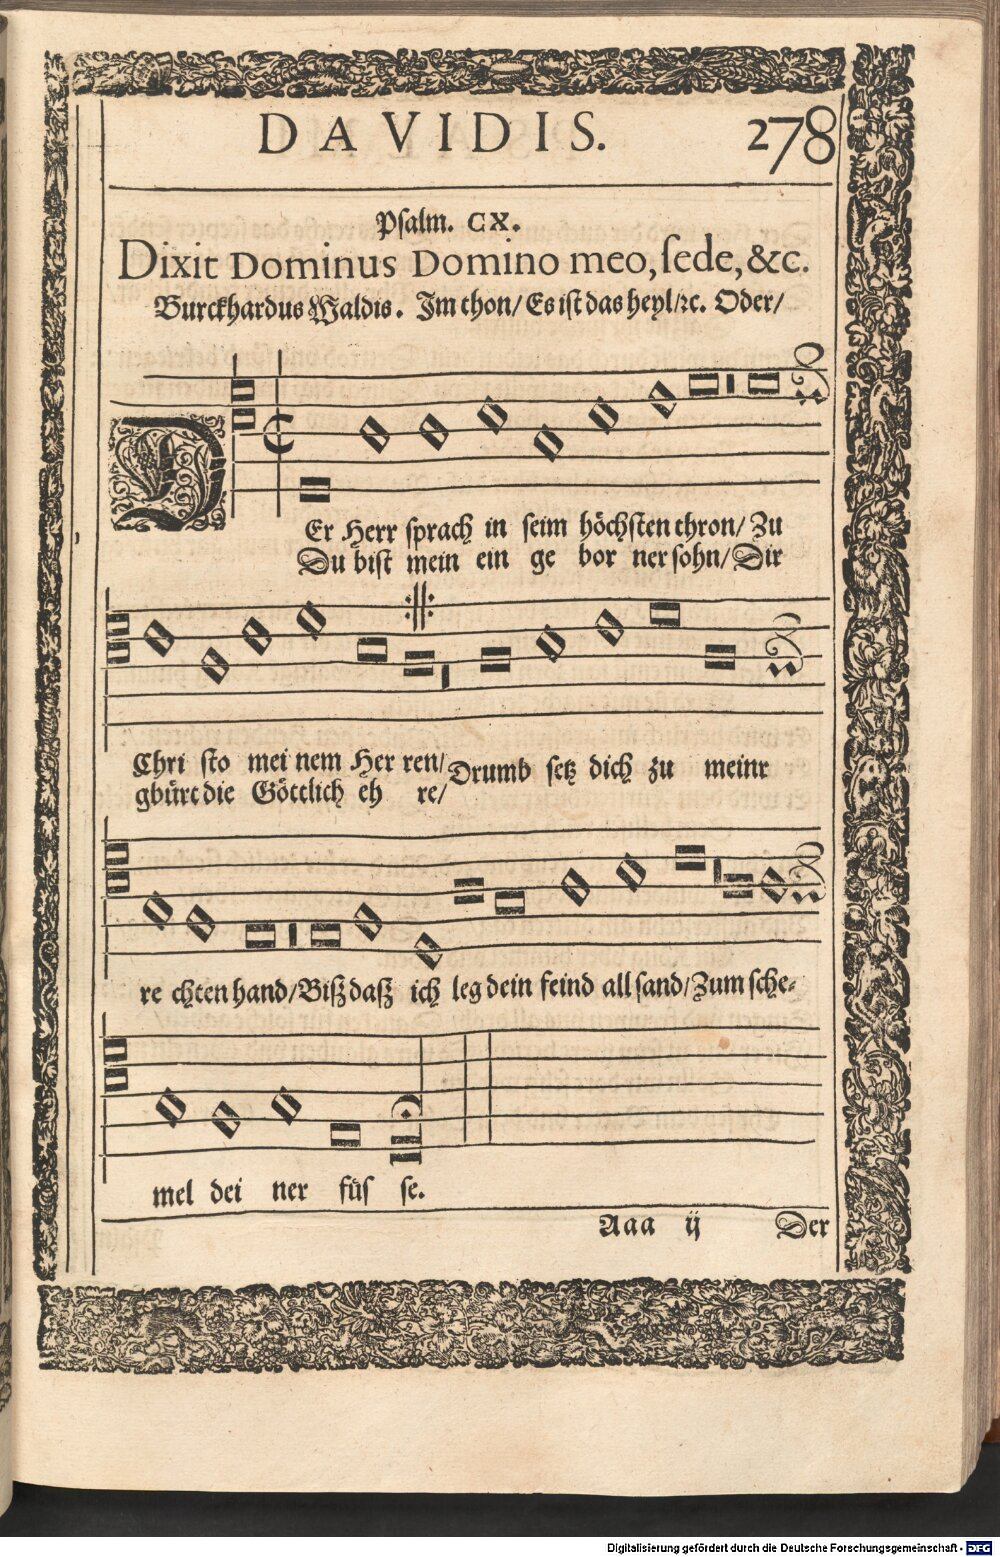 DAVIDIS. 278
Psalm. CX.
Dixit Dominus Domino meo, sede, &c.
Burckhardus Waldis. Im thon/ Es ist das heyl/ꝛc. Oder/
DEr Herr sprach in seim höchsten thron/ Zu
Du bist mein ein ge bor ner sohn/ Dir
Christo mei nem Her ren/ Drumb setz dich zu meinr
gbürt die Göttlich eh re/
re chten hand/ Biß daß ich leg dein feind all sand/ Zum sche-
mel dei ner füs se.
Aaa ij Der
Digitalisierung gefördert durch die Deutsche Forschungsgemeinschaft - DFG